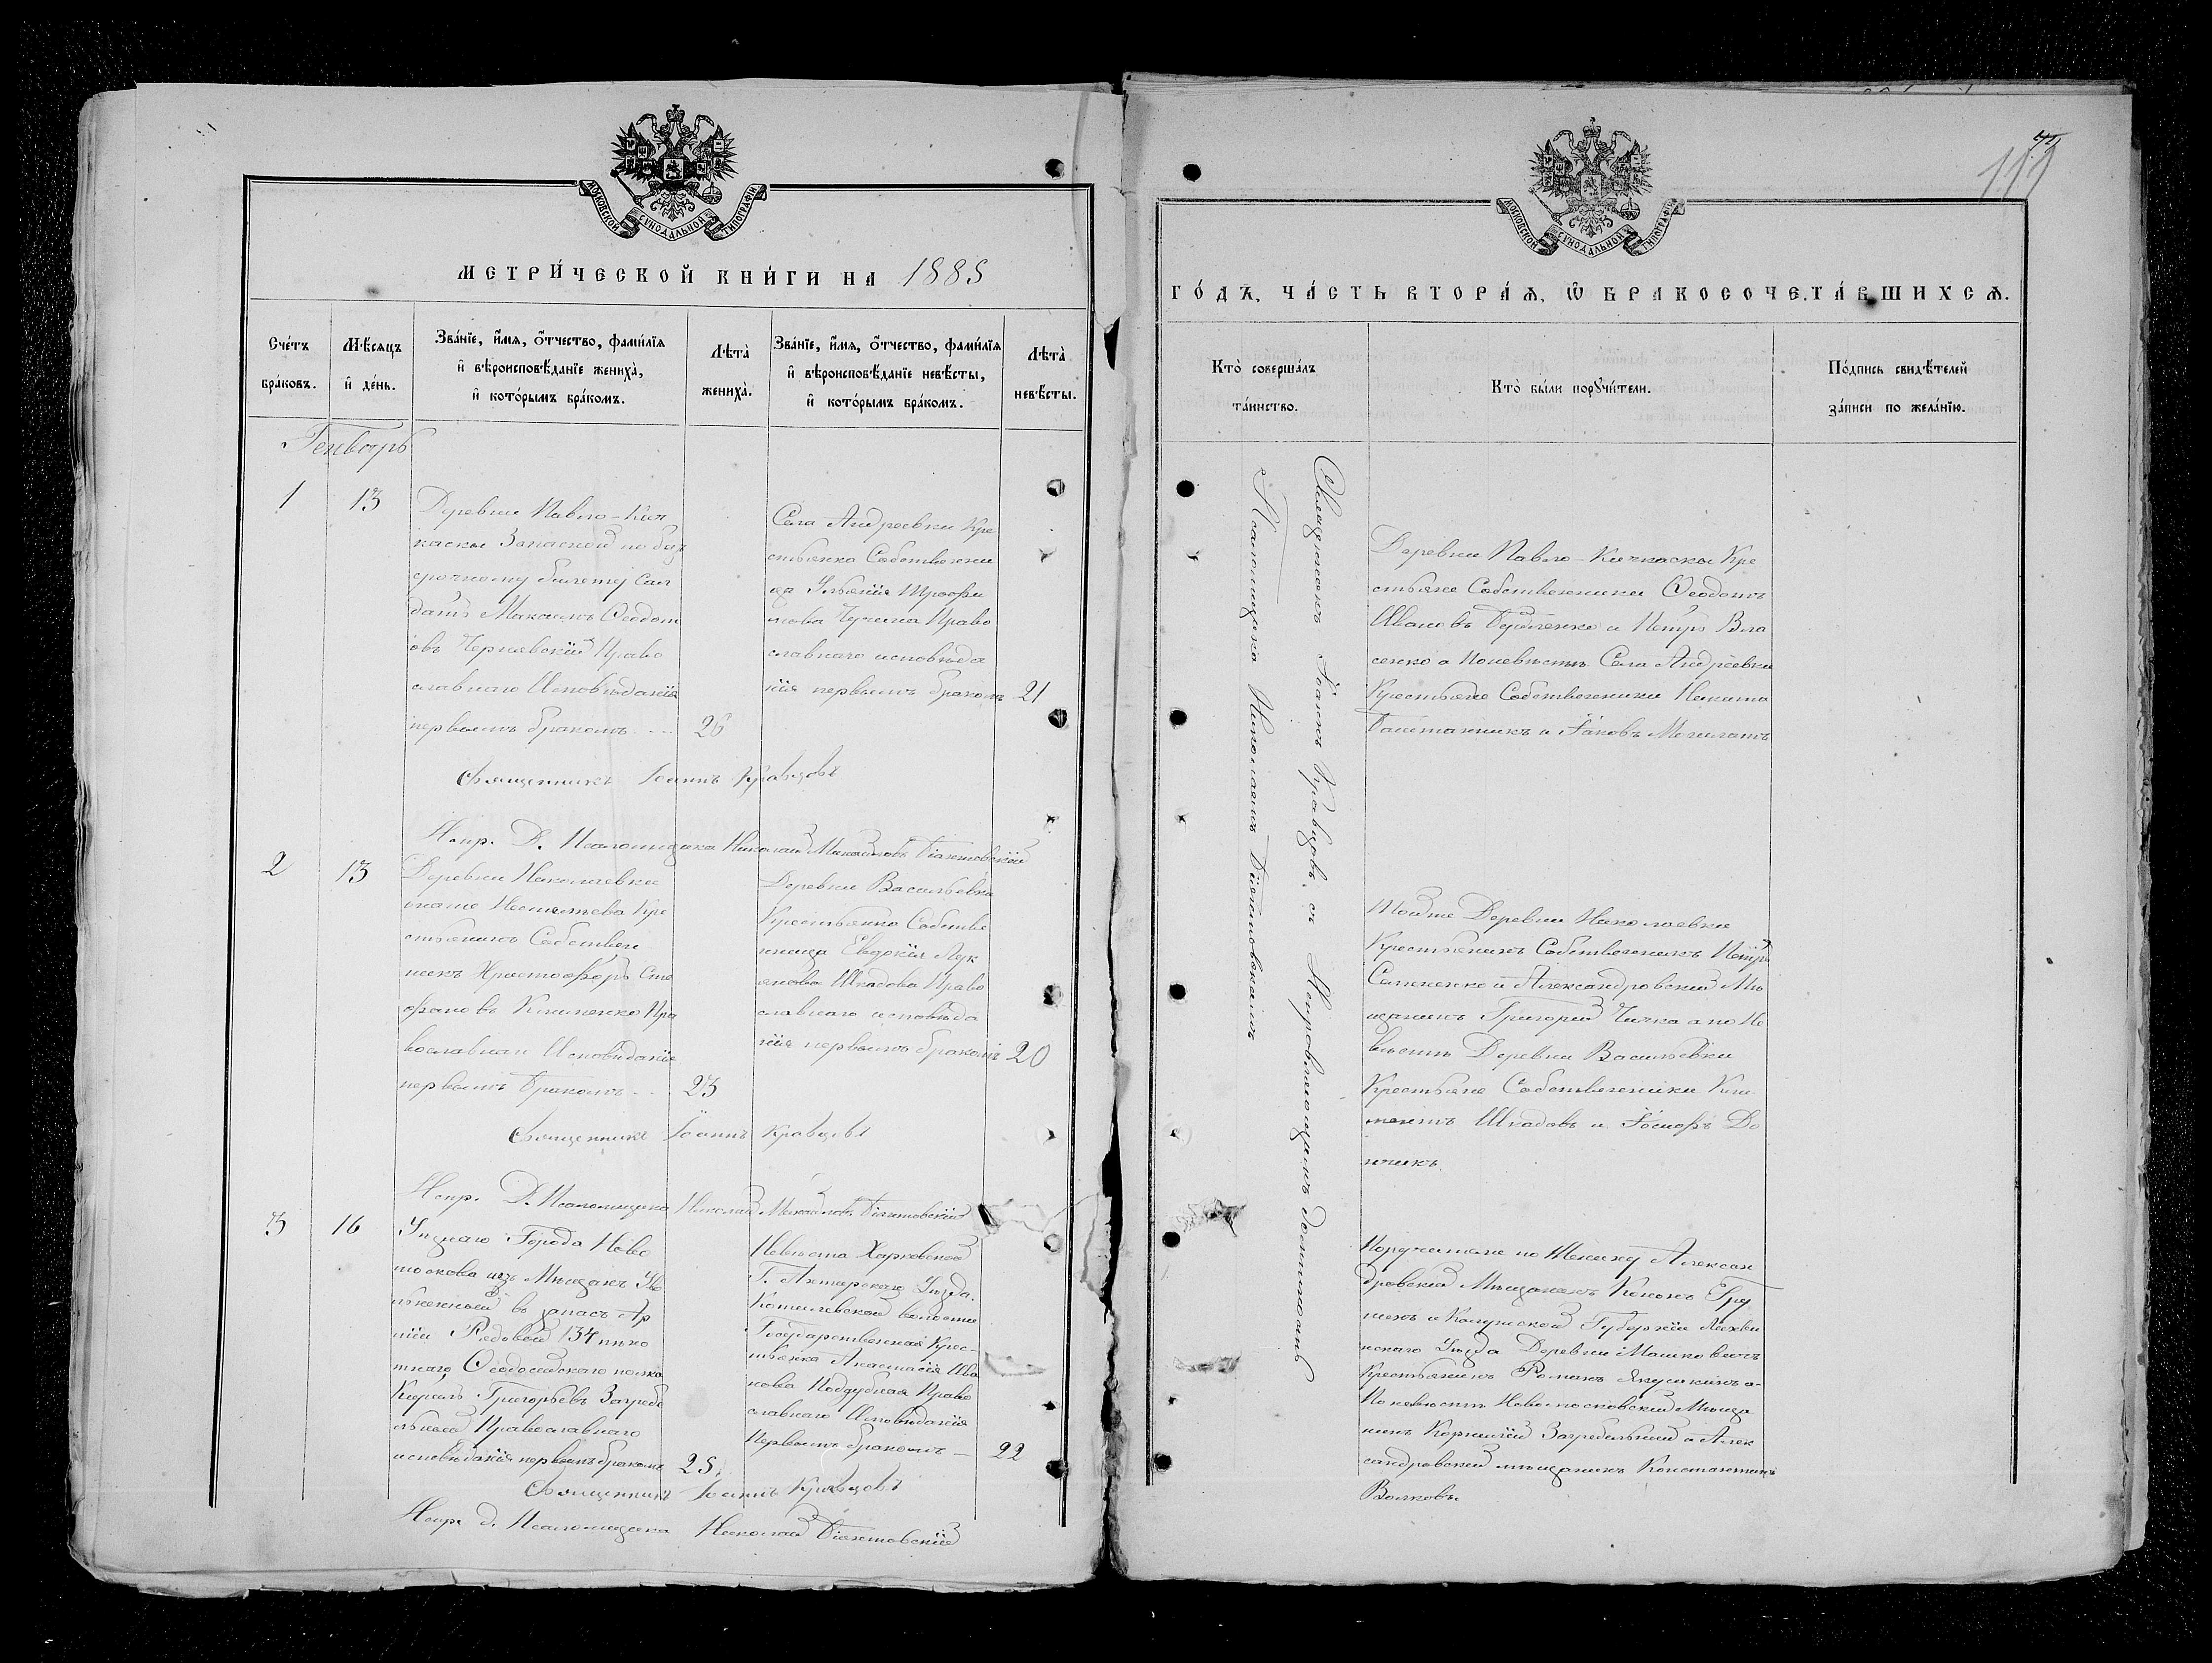 МОСКОВСКОЙ СѴНОДАЛЬНОЙ ТИПОГРАФІИ
МЕТРИ́ЧЕСКОЙ КНИ́ГИ НА 1885
Сче́тъ бра́ковъ.
Мѣ́сяцъ и҆ де́нь.
Зва́нїе, и҆́мя, ѻ҆́тчество, фами́лїя
и҆ вѣроисповѣ́данїе жениха̀,
и҆ кото́рымъ бра́комъ.
Лѣта̀ жениха̀.
Зва́нїе, и҆́мя, ѻ҆́тчество, фами́лїя
и҆ вѣроисповѣ́данїе невѣ́сты,
и҆ кото́рымъ бра́комъ.
Лѣта̀ невѣ́сты.
Генварь
1
13
Деревни Павло-Кич
каскы Запасной по без
срочному билету Сол
датъ Максимъ Ѳеодот
овъ Чернявскій Право
славнаго Исповѣданія
первымъ бракомъ
26
Села Андреевки Кре
стьянка Собственни
ца Ульянія Трофи
мова Право
славнаго исповѣда
нія первымъ бракомъ
21
Священникъ Іоаннъ Кравцовъ
Испр. Д. Псаломщика Николай Михайловъ
2
13
Деревни Николаевки
Кре
стьянинъ Собствен
никъ Христофоръ Сте
фановъ Клименко Пра
вославнаго Исповѣданія
первымъ бракомъ
23
Деревни Васильевки
Крестьянка Собстве
нница Евдокія Лук
янова Шкадова Право
славнаго исповѣда
нія первымъ бракомъ
20
Священникъ Іоаннъ Кравцовъ
Испр. Д. Псаломщика Николай Михайловъ
3
16
Уѣзнаго Города Ново
москова изъ Мѣщанъ Уво
льненный въ запасъ Ар
міи Рядовой 134 пихо
тнаго Ѳеодосійскаго полка
Кирилъ Григорьевъ Загребе
льный Православнаго
исповѣданія первымъ бракомъ
25.
Невѣста Харковской
Г. Ахтирскаго Уѣзда.
Котелевской волости
Государственная Крес-
тьянка Анастасія Ива
нова Поддубная Право
славнаго Исповѣданія
Первымъ бракомъ —
22
Священникъ Іоаннъ Кравцовъ
Испр. д. Псаломщика Николай
МОСКОВСКОЙ СѴНОДАЛЬНОЙ ТИПОГРАФІИ
111
ГО́ДЪ, ЧА́СТЬ ВТОРА́Я, Ѽ БРАКОСОЧЕТА́ВШИХСЯ.
Кто̀ соверша́лъ
та́инство.
Кто̀ бы́ли порꙋчи́тели.
По́дпись свидѣ́телей
за́писи по жела́нїю.
Священникъ Іоаннъ Кравцовъ, съ Исправляющимъ должность
Псаломщика Николаемъ
Деревни Павло-Кичкаскы Кре
стьяне Собственники Ѳеодотъ
Ивановъ и Петръ Вла
сенко а Поневѣстѣ Села Андреевки
Крестьяне Собственники Никита
Баштанникъ и Іаковъ
Тойже Деревни Николаевки
Крестьянинъ Собственникъ Петръ
и Александровский Мѣ
щанинъ Григорий Чичка а по Не
вѣстѣ Деревни Васильевки
Крестьяне Собственники Кли
ментъ Шкадовъ и Іосифъ До
Поручители по Жениху Алексан
дровский Мѣщанинъ Кононъ
и Калужской Губерніи Лихви
нскаго Уѣзда Деревни
Крестьянинъ Романъ Якушкинъ а-
Поневѣстѣ Новомосковский Мѣща
нинъ Корнилій Загребельный и Алек
сандровский мѣщанинъ Константинъ
Волковъ.